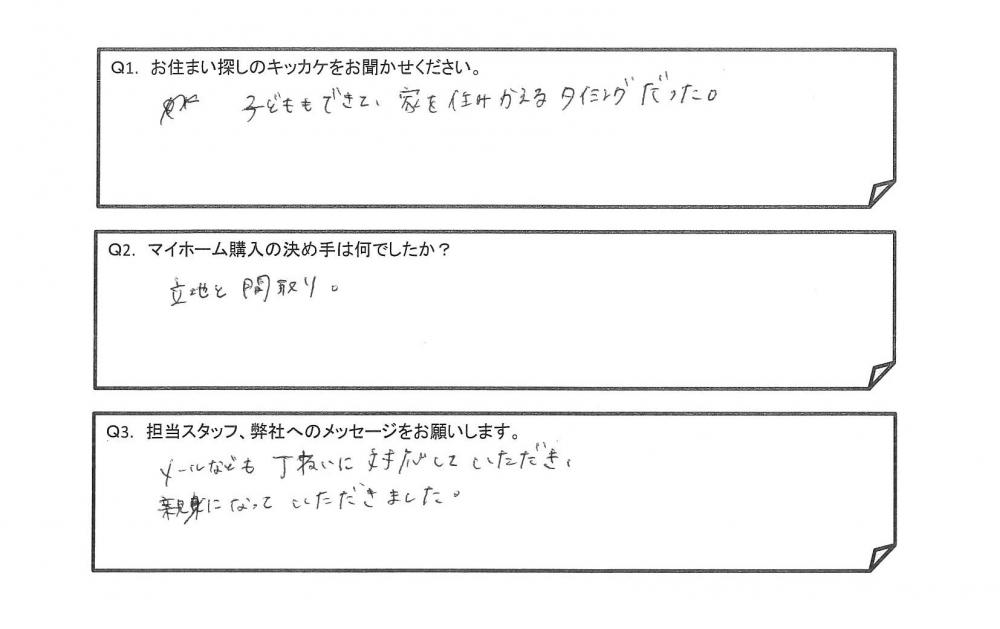 Q1. お住まい探しのキッカケをお聞かせください。
子どももできて、家を住みかえるタイミングだった。
Q2. マイホーム購入の決め手は何でしたか？
立地と間取り。
Q3. 担当スタッフ、弊社へのメッセージをお願いします。
メールなども丁ねいに対応していただき、
親身になっていただきました。